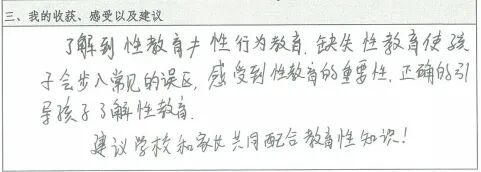 三、我的收获、感受以及建议
了解到性教育≠性行为教育.缺失性教育使孩
子会步入常见的误区,感受到性教育的重要性.正确的引
导孩子了解性教育.
建议学校和家长共同配合教育性知识!